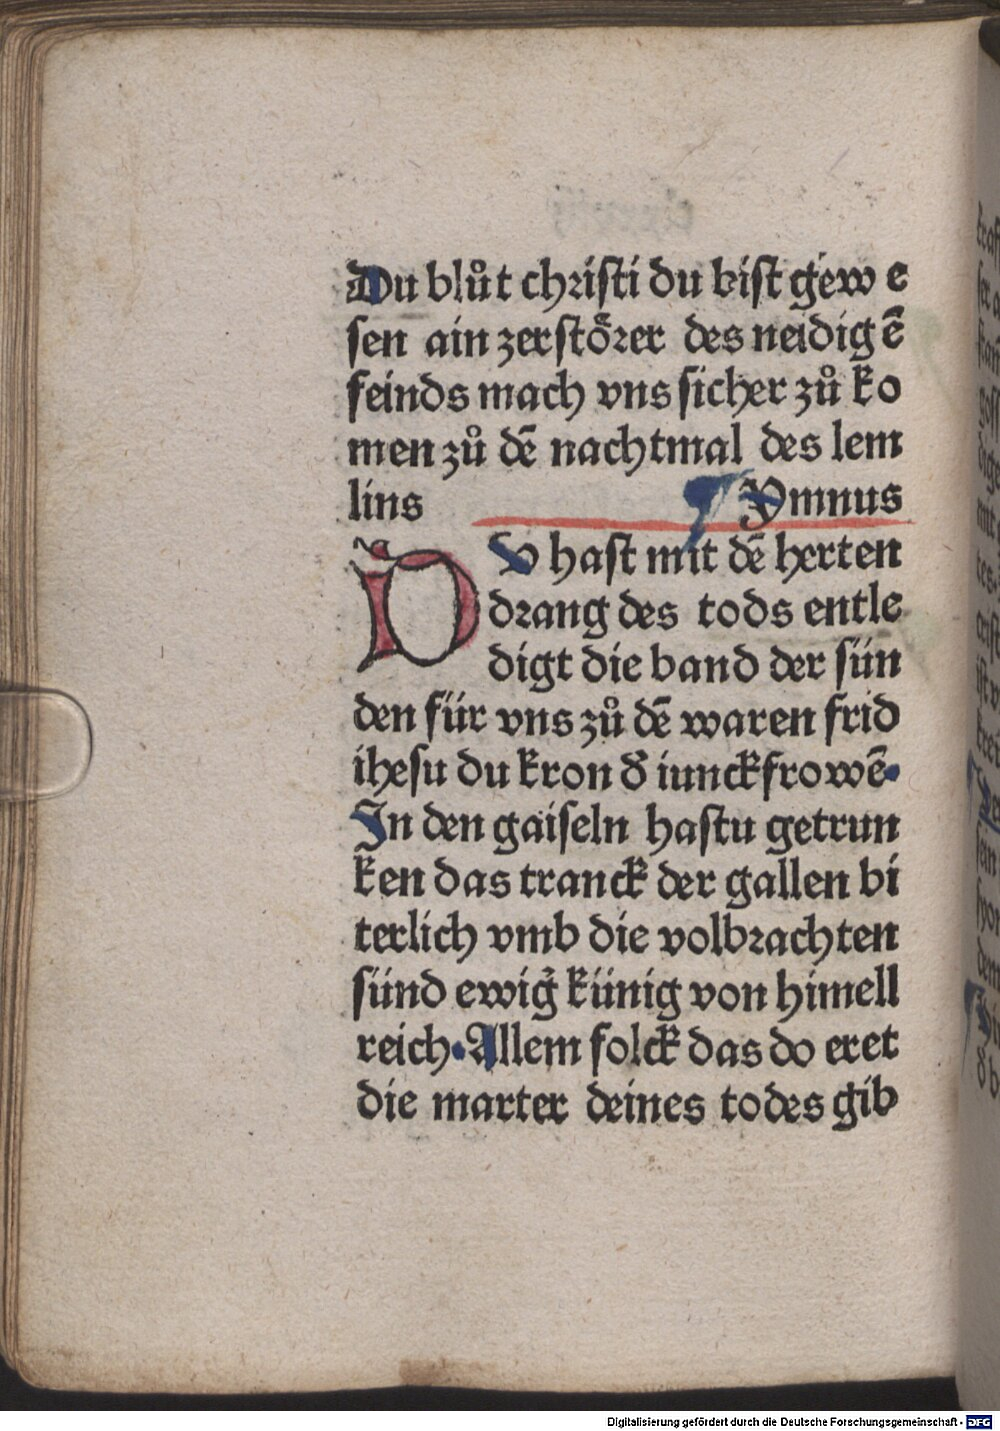 Du blůt christi du bist gewe
sen ain zerstoͤrer des neidigē
feinds mach vns sicher zů ko
men zů dē nachtmal des lem
lins ¶ Ymnus
DV hast mit dē herten
drang des tods entle
digt die band der sün
den für vns zů dē waren frid
ihesu du kron d͛ iunckfrowē·
In den gaiseln hastu getrun
ken das tranck der gallen bi
terlich vmb die volbrachten
sünd ewig͛ künig von himell
reich·Allem folck das do eret
die marter deines todes gib
Digitalisierung gefördert durch die Deutsche Forschungsgemeinschaft - DFG